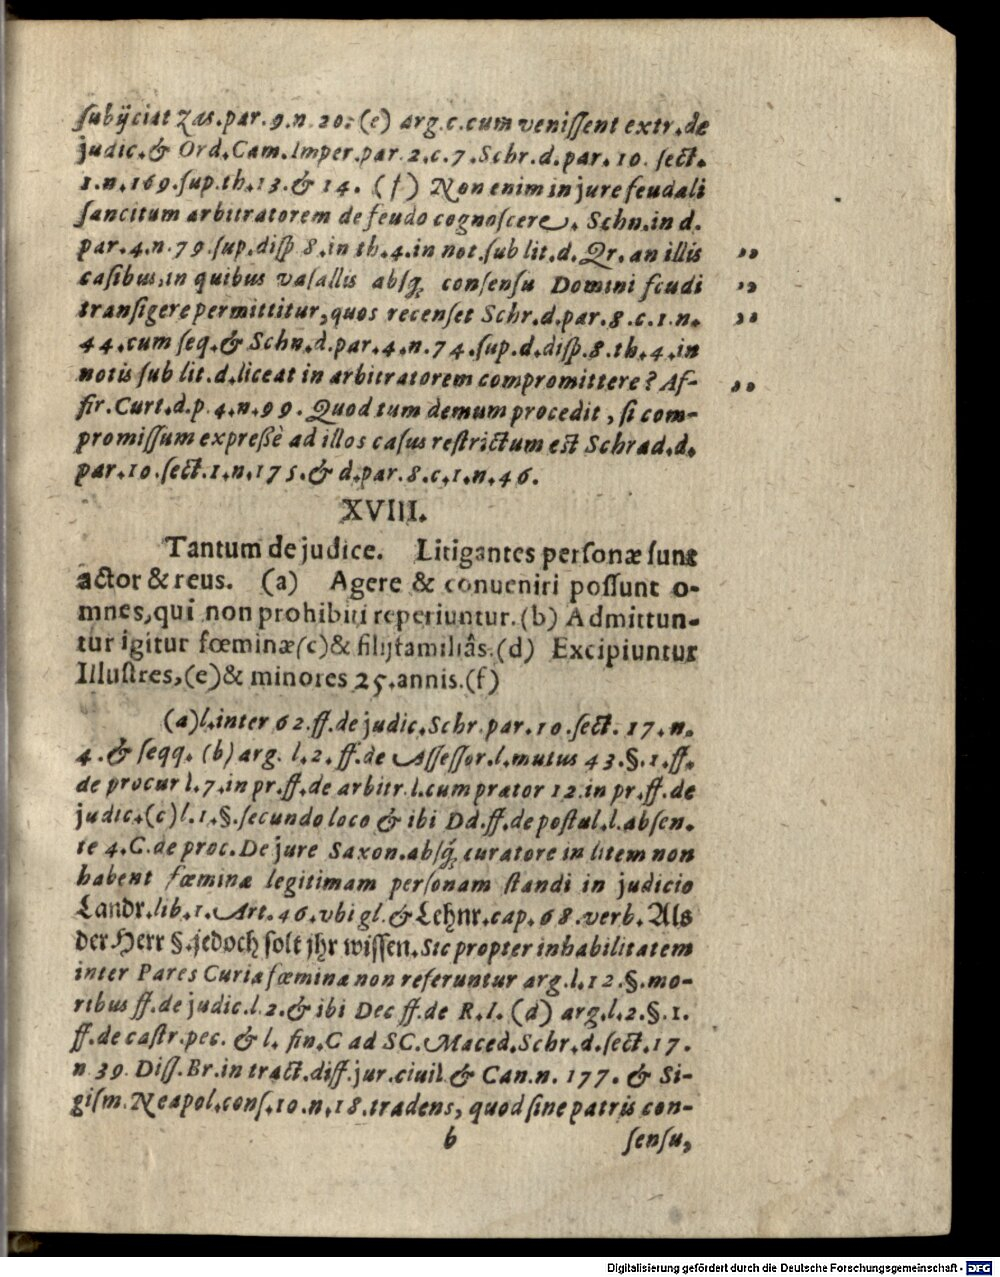 ſubijciat Zas.par.9.n.20.(e) arg.c.cum veniſſent extr.de
judic.& Ord.Cam.Imper.par.2.c.7.Schr.d.par.10.ſect.
1.n.169.ſup.th.13.& 14. (f) Non enim in jure feudali
ſancitum arbitratorem de feudo cognoſcere. Schn.in d.
par.4.n.79.ſup.diſp 8.in th.4.in not.ſub lit.d. Qr. an illis „
caſibus,in quibus vaſallis abſq; conſenſu Domini feudi „
tranſigere permittitur,quos recenſet Schr.d.par.8.c.1.n. „
44.cum ſeq.& Schn.d.par.4.n.74.ſup.d.diſp.8.th.4.in
notis ſub lit.d.liceat in arbitratorem compromittere? Af- „
fir.Curt.d.p.4.n.99. Quod tum demum procedit, ſi com-
promiſſum expreßè ad illos caſus reſtrictum est Schrad.d.
par.10.ſect.1.n.175.& d.par.8.c.1.n.46.
XVIII.
Tantum de judice. Litigantes perſonæ ſunt
actor & reus. (a) Agere & conueniri poſſunt o-
mnes,qui non prohibiti reperiuntur.(b) Admittun-
tur igitur fœminæ(c)& filijfamiliâs.(d) Excipiuntur
Illuſtres,(e)& minores 25.annis.(f)
(a)l.inter 62.ff.de judic.Schr.par.10.ſect.17.n.
4.& ſeqq. (b) arg. l.2.ff.de Aſſeſſor.l.mutus 43.§.1.ff.
de procur l.7.in pr.ff.de arbitr.l.cum prætor 12.in pr.ff.de
judic.(c)l.1.§.ſecundo loco & ibi Dd.ff.de poſtul.l.abſen.
te 4.C.de proc.De jure Saxon.abſq; curatore in litem non
habent fœminæ legitimam perſonam ſtandi in judicio
Landr.lib.1.Art.46.vbi gl.& Lehnr.cap.68.verb.Als
der Herr §.jedoch ſolt jhr wiſſen.Sic propter inhabilitatem
inter Pares Curiæ fœminæ non referuntur arg.l.12.§.mo-
ribus ff.de judic.l.2.& ibi Dec ff.de R.I. (d) arg.l.2.§.1.
ff.de caſtr.pec. & l. fin.C ad SC.Maced.Schr.d.ſect.17.
n 39. Diſſ.Br.in tract.diff.jur.ciuil & Can.n. 177. & Si-
giſm.Neapol.conſ.10.n.18.tradens, quod ſine patris con-
b ſenſu,
Digitalisierung gefördert durch die Deutsche Forschungsgemeinschaft - DFG